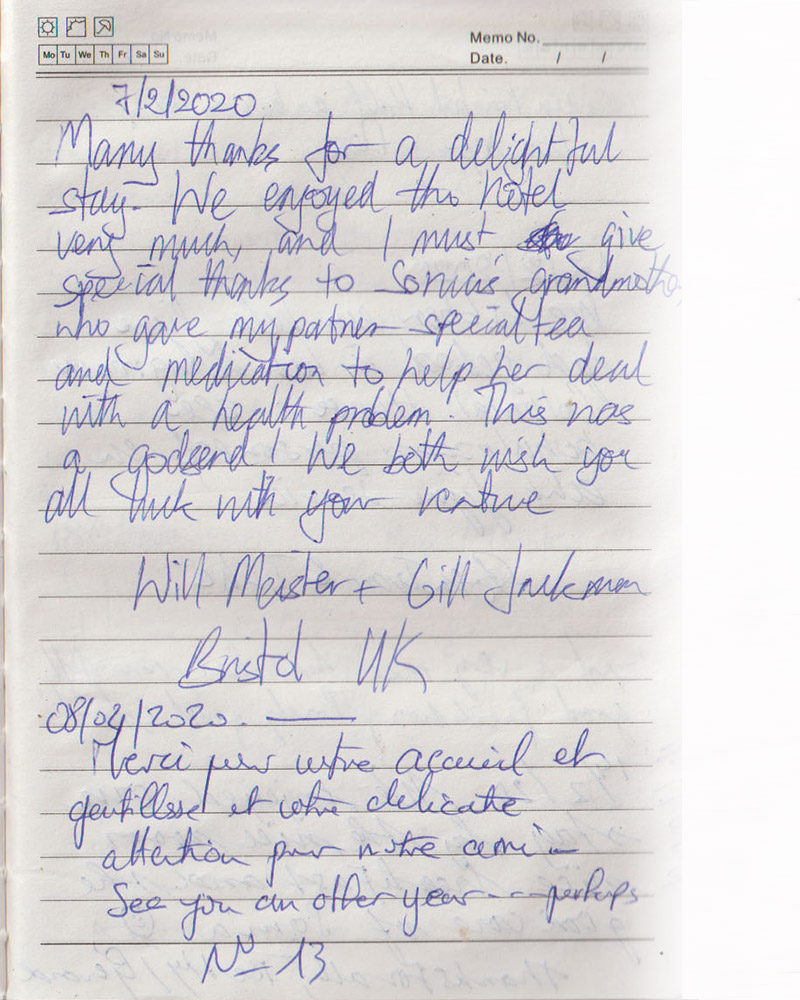 Memo No.
Mo Tu We Th Fr Sa Su
Date. / /
7/2/2020
Many thanks for a delightful
stay. We enjoyed the hotel
very much, and I must give
special thanks to Sonia's grandmother
who gave my partner special tea
and medication to help her deal
with a health problem. This was
a godsend! We both wish you
all luck with your venture
Will Meister + Gill Jackman
Bristol UK
08/02/2020.
Merci pour votre accueil et
gentillesse et votre délicate
attention pour notre ami
See you an other year --- perhaps
No 13